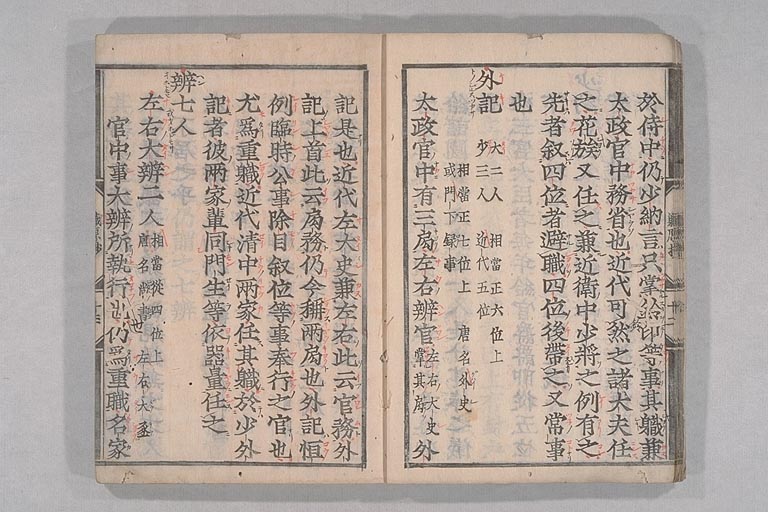 於侍中仍少納言只掌給印等事其軄兼
太政官中務省也近代可然之諸大夫任
之花族又任之兼近衛中少將之例有之
先者叙四位者避職四位後帶之又常事
也
外記 大二人 相當正六位上
少三人 近代五位
相當正七位上 唐名外史
或門下録事
太政官中有三局左右辨官 左右大史
掌其局 外
記是也近代左大史兼左右此云官務外
記上首此云局務仍今稱兩局也外記恒
例臨時公事除目叙位等事奉行之官也
尤爲重軄近代清中兩家任其軄於少外
記者彼兩家輩同門生等依器量任之
辨七人
左右大辨二人 相當從四位上
唐名 左右大丞
官中事大辨所執行也仍爲重職名家